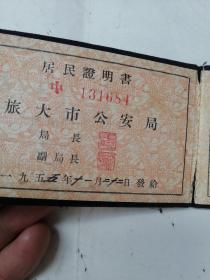 居民證明書
中 131684
旅大市公安局
局長
副局長
一九五五年十一月二十二日發給